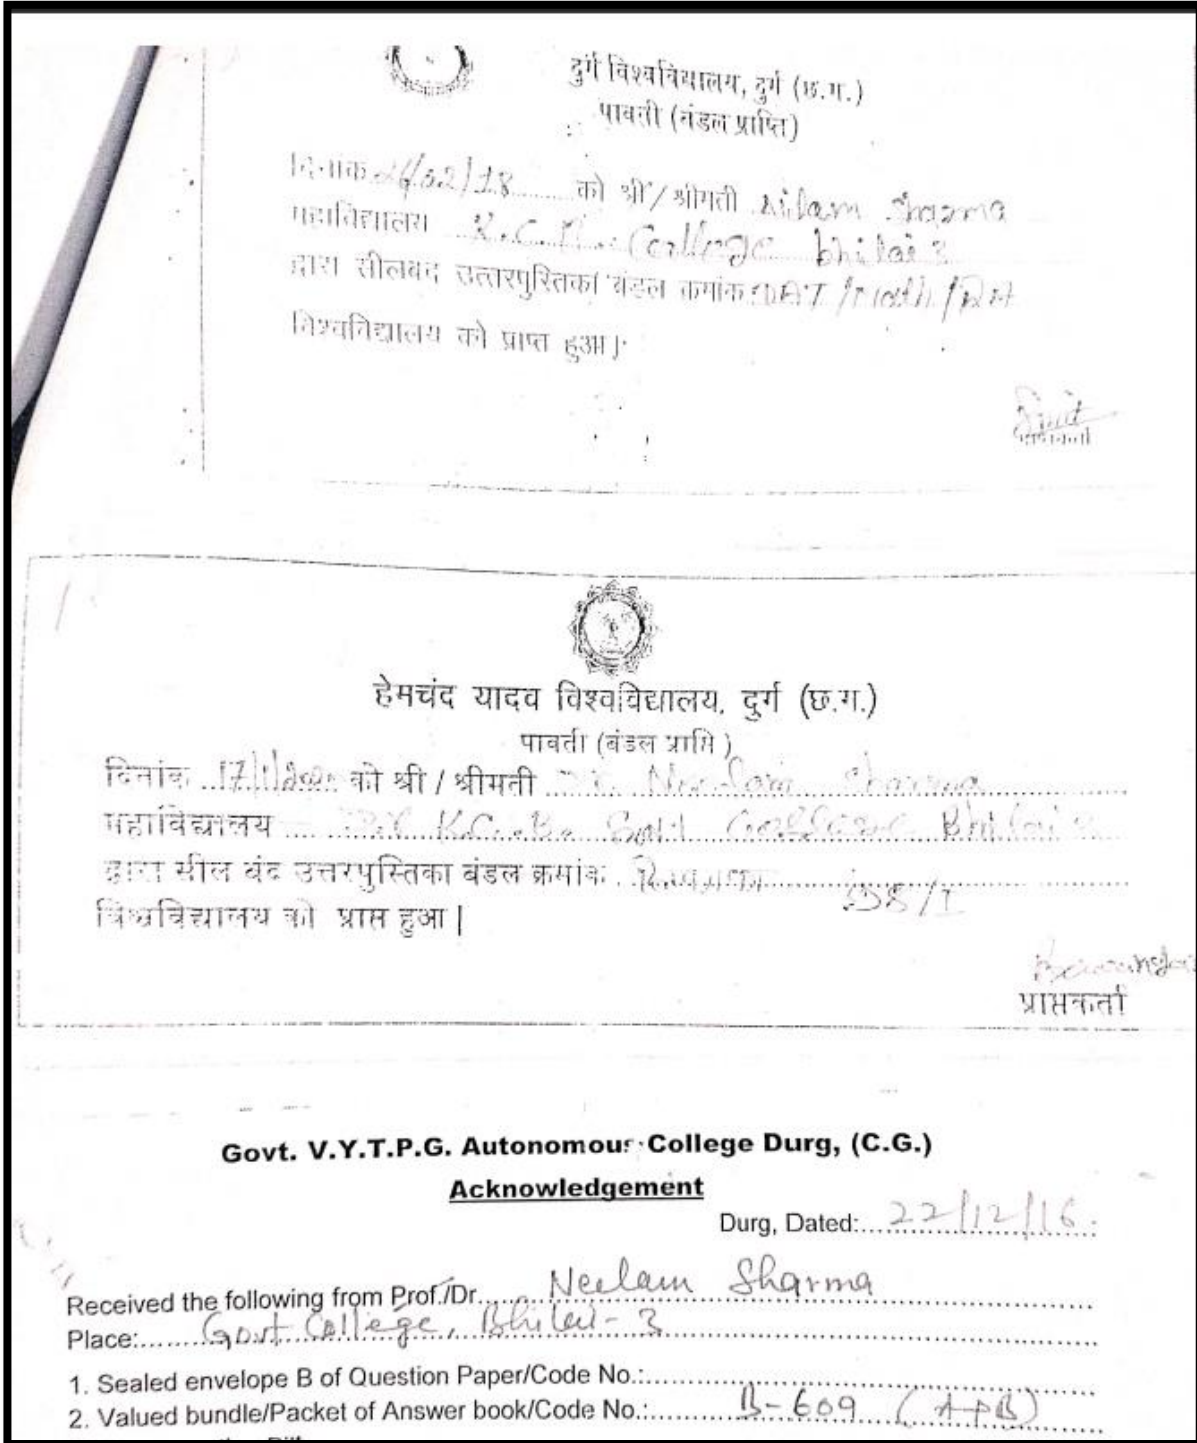 दुर्ग विश्वविद्यालय, दुर्ग (छ.ग.)
पावती (बंडल प्राप्ति)
दिनांक /02/18 को श्री/श्रीमती Nilam Sharma
महाविद्यालय College bhilai 3
द्वारा सीलबंद उत्तरपुस्तिका बंडल क्रमांक
विश्वविद्यालय को प्राप्त हुआ।
हेमचंद यादव विश्वविद्यालय, दुर्ग (छ.ग.)
पावती (बंडल प्राप्ति)
दिनांक 17/1/ को श्री / श्रीमती Neelam Sharma
महाविद्यालय College Bhilai 3
द्वारा सील बंद उत्तरपुस्तिका बंडल क्रमांक
विश्वविद्यालय को प्राप्त हुआ |
प्राप्तकर्ता
Govt. V.Y.T.P.G. Autonomous College Durg, (C.G.)
Acknowledgement
Durg, Dated: 22/12/16.
Received the following from Prof./Dr. Neelam Sharma
Place: Govt College, Bhilai-3
1. Sealed envelope B of Question Paper/Code No.:
2. Valued bundle/Packet of Answer book/Code No.: B-609 (APB)